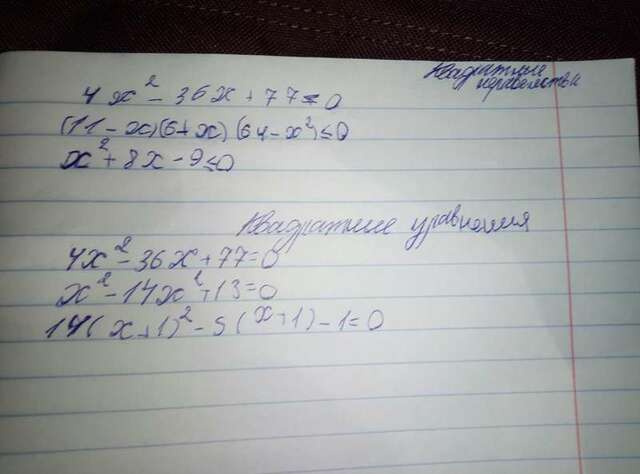 Квадратные
неравенства
4x² - 36x + 77 < 0
(11 - x)(6 + x)(64 - x²) ≤ 0
x² + 8x - 9 ≤ 0
Квадратние уравнения
4x² - 36x + 77 = 0
x² - 14x² + 13 = 0
14(x + 1)² - 5(x + 1) - 1 = 0